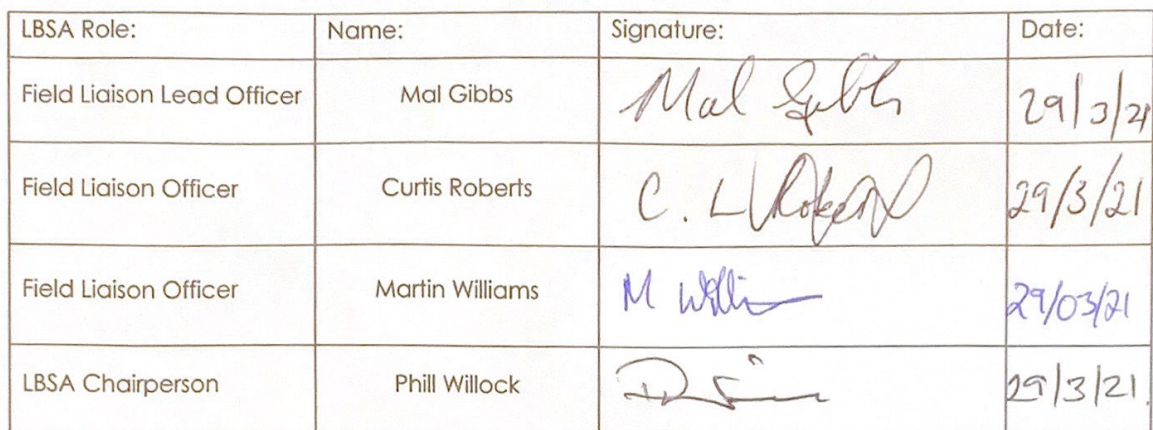 LBSA Role: Name: Signature: Date:
Field Liaison Lead Officer Mal Gibbs Mal Gibbs 29/3/21
Field Liaison Officer Curtis Roberts C. L Roberts 29/3/21
Field Liaison Officer Martin Williams M Willi 29/03/21
LBSA Chairperson Phill Willock 29/3/21.